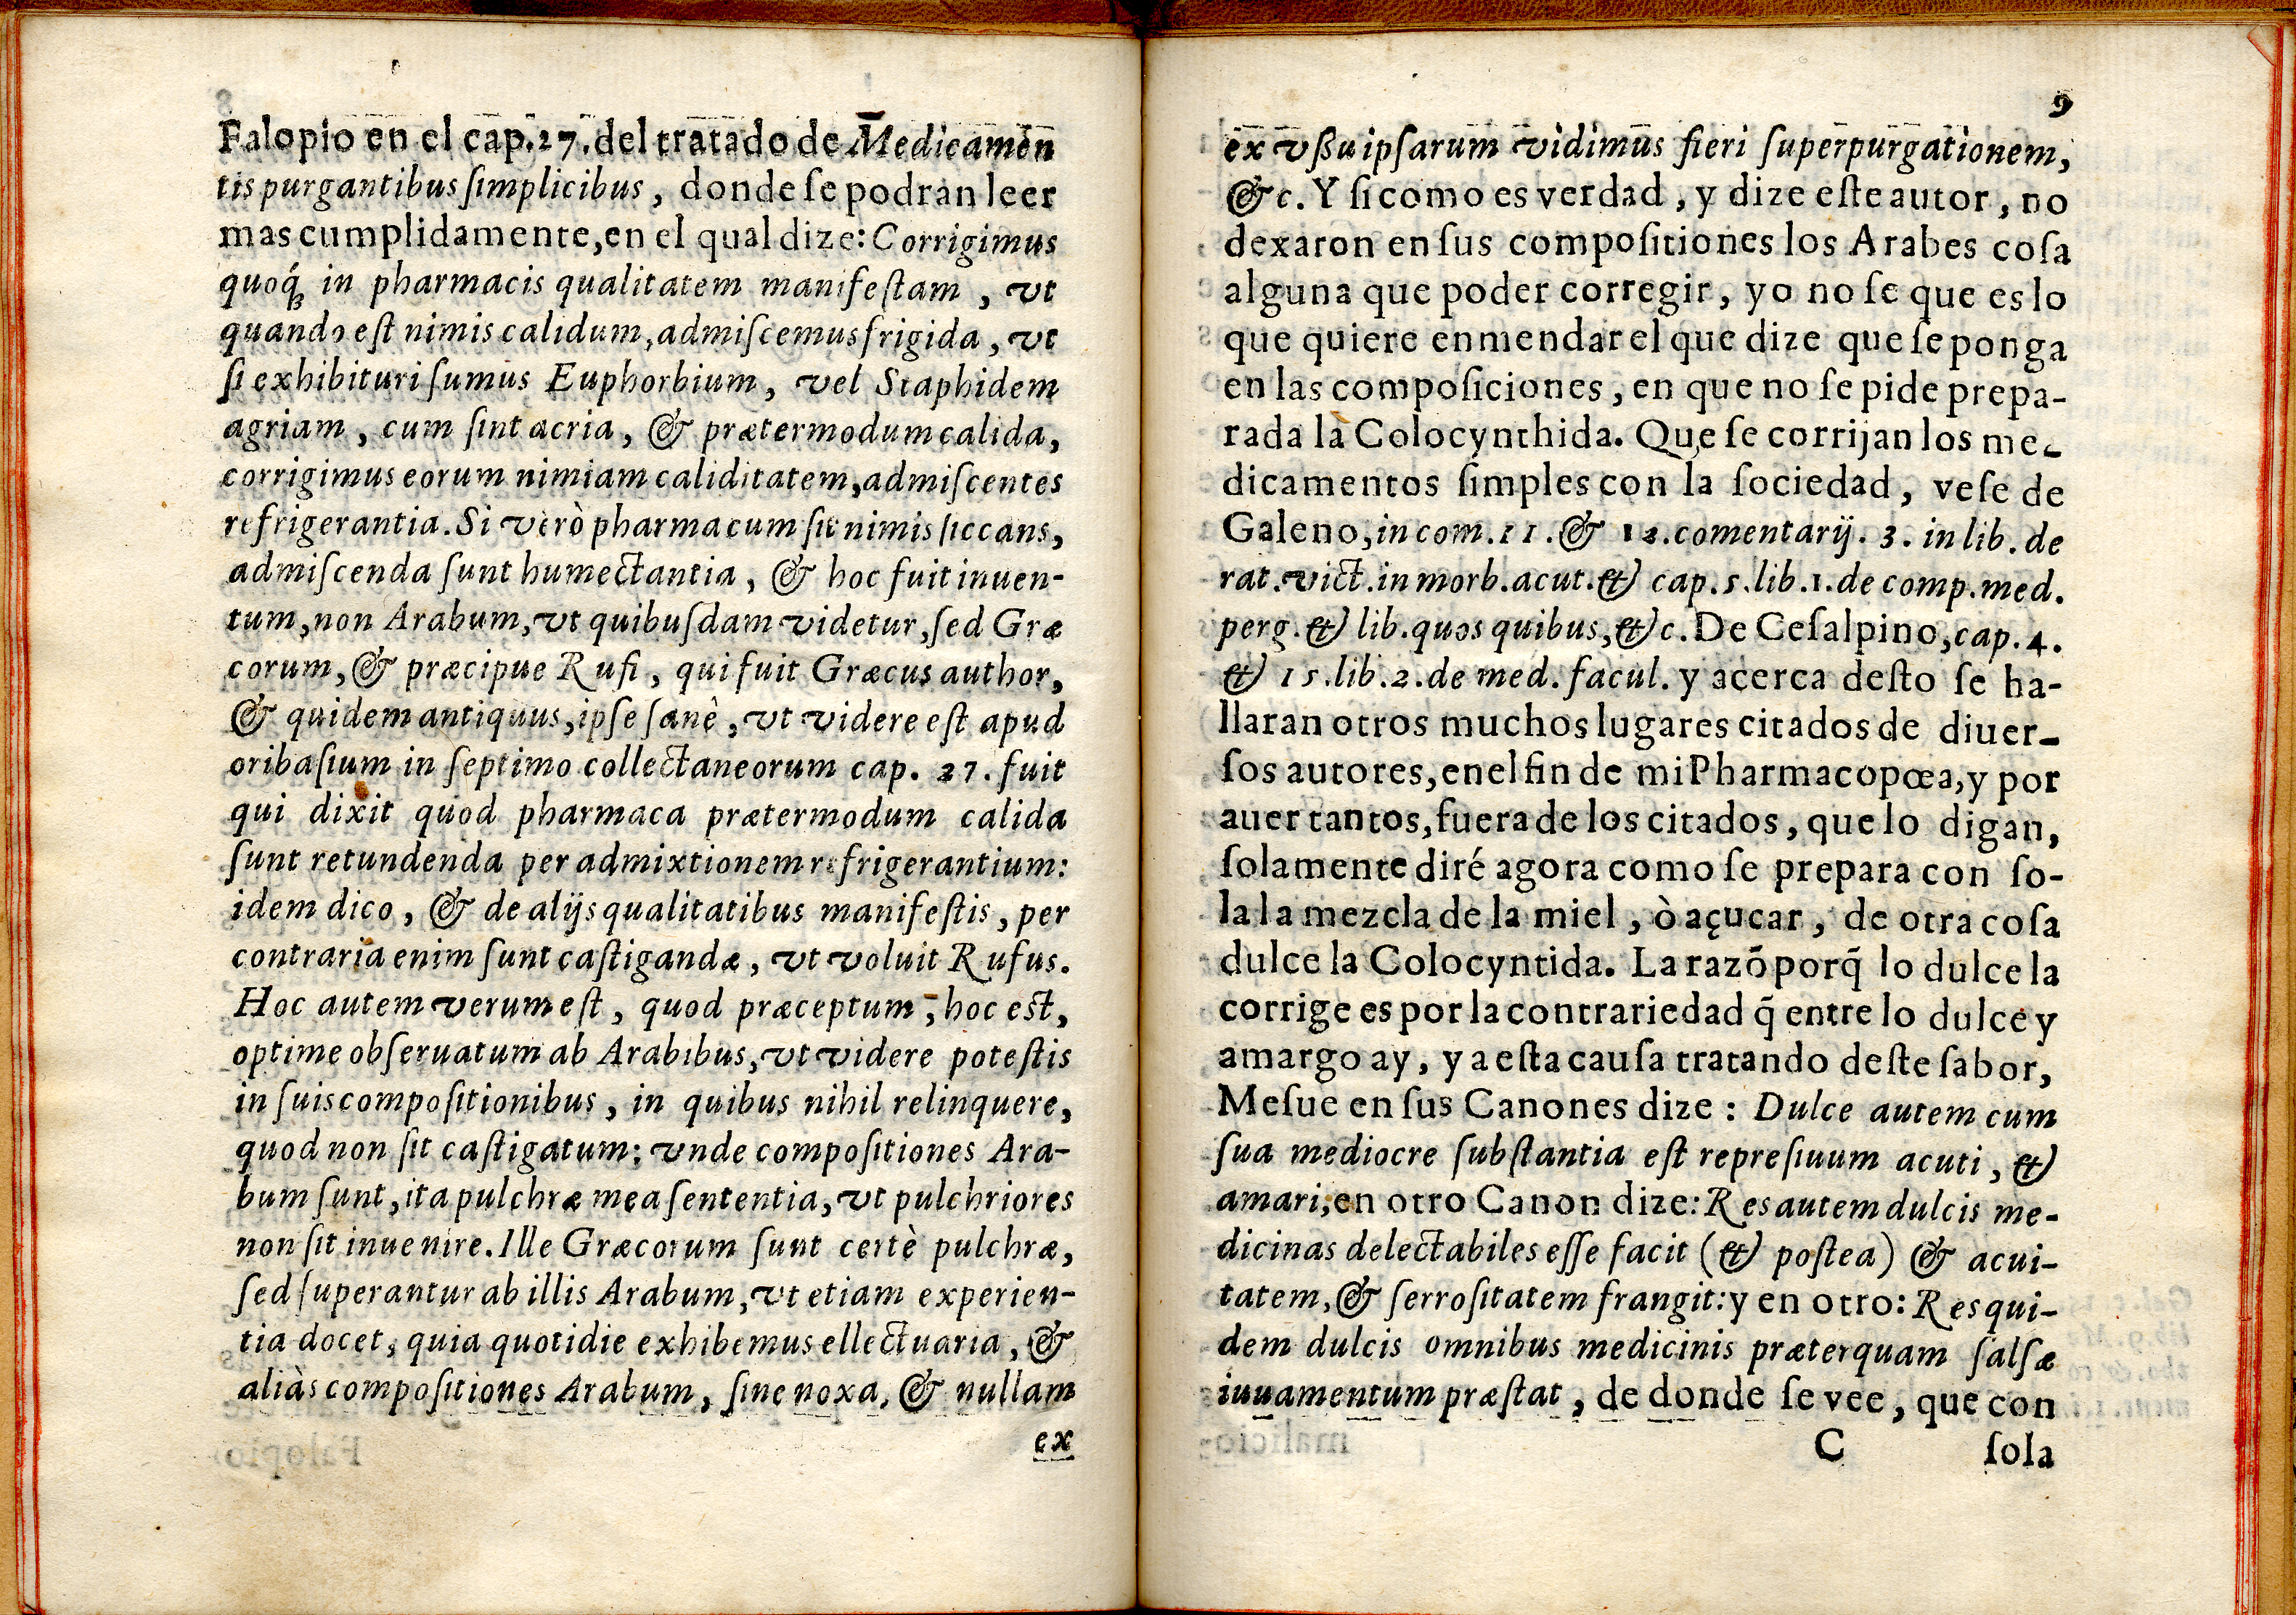 Falopio en el cap.27.del tratado de Medicamen
tis purgantibus ſimplicibus, donde ſe podran leer
mas cumplidamente,en el qual dize: Corrigimus
quoq́; in pharmacis qualitatem manifeſtam, vt
quando eſt nimis calidum,admiſcemus frigida, vt
ſi exhibituri ſumus Euphorbium, vel Staphidem
agriam, cum ſint acria, & prætermodum calida,
corrigimus eorum nimiam caliditatem,admiſcentes
refrigerantia. Si verò pharmacum ſit nimis ſiccans,
admiſcenda ſunt humectantia, & hoc fuit inuen-
tum,non Arabum,vt quibuſdam videtur,ſed Græ
corum,& præcipue Rufi, qui fuit Græcus author,
& quidem antiquus,ipſe ſanè, vt videre eſt apud
oribaſium in ſeptimo collectaneorum cap. 27. fuit
qui dixit quod pharmaca prætermodum calida
ſunt retundenda per admixtionem refrigerantium:
idem dico, & de alijs qualitatibus manifeſtis, per
contraria enim ſunt caſtigandæ, vt voluit Rufus.
Hoc autem verum eſt, quod præceptum, hoc eſt,
optime obſeruatum ab Arabibus,vt videre poteſtis
in ſuis compoſitionibus, in quibus nihil relinquere,
quod non ſit caſtigatum: vnde compoſitiones Ara-
bum ſunt,ita pulchræ mea ſententia,vt pulchriores
non ſit inuenire. Ille Græcorum ſunt certè pulchræ,
ſed ſuperantur ab illis Arabum,vt etiam experien-
tia docet, quia quotidie exhibemus ellectuaria, &
aliàs compoſitiones Arabum, ſine noxa, & nullam
ex
9
ex vßu ipſarum vidimus fieri ſuperpurgationem,
&c. Y ſi como es verdad, y dize eſte autor, no
dexaron en ſus compoſitiones los Arabes coſa
alguna que poder corregir, yo no ſe que es lo
que quiere enmendar el que dize que ſe ponga
en las compoſiciones, en que no ſe pide prepa-
rada la Colocynthida. Que ſe corrijan los me-
dicamentos ſimples con la ſociedad, veſe de
Galeno,in com.11.& 12.comentarij. 3. in lib. de
rat.vict.in morb.acut.& cap.5.lib.1.de comp.med.
perg.& lib.quos quibus,&c. De Ceſalpino,cap.4.
& 15.lib.2.de med. facul. y acerca deſto ſe ha-
llaran otros muchos lugares citados de diuer-
ſos autores,en el fin de mi Pharmacopœa,y por
auer tantos,fuera de los citados, que lo digan,
ſolamente diré agora como ſe prepara con ſo-
la la mezcla de la miel, ò açucar, de otra coſa
dulce la Colocyntida. La razõ porq̃ lo dulce la
corrige es por la contrariedad q̃ entre lo dulce y
amargo ay, y a eſta cauſa tratando deſte ſabor,
Meſue en ſus Canones dize: Dulce autem cum
ſua mediocre ſubſtantia eſt repreſiuum acuti, &
amari,en otro Canon dize: Res autem dulcis me-
dicinas delectabiles eſſe facit (& poſtea) & acui-
tatem,& ſerroſitatem frangit:y en otro: Res qui-
dem dulcis omnibus medicinis præterquam ſalſæ
iuuamentum præſtat, de donde ſe vee, que con
C ſola